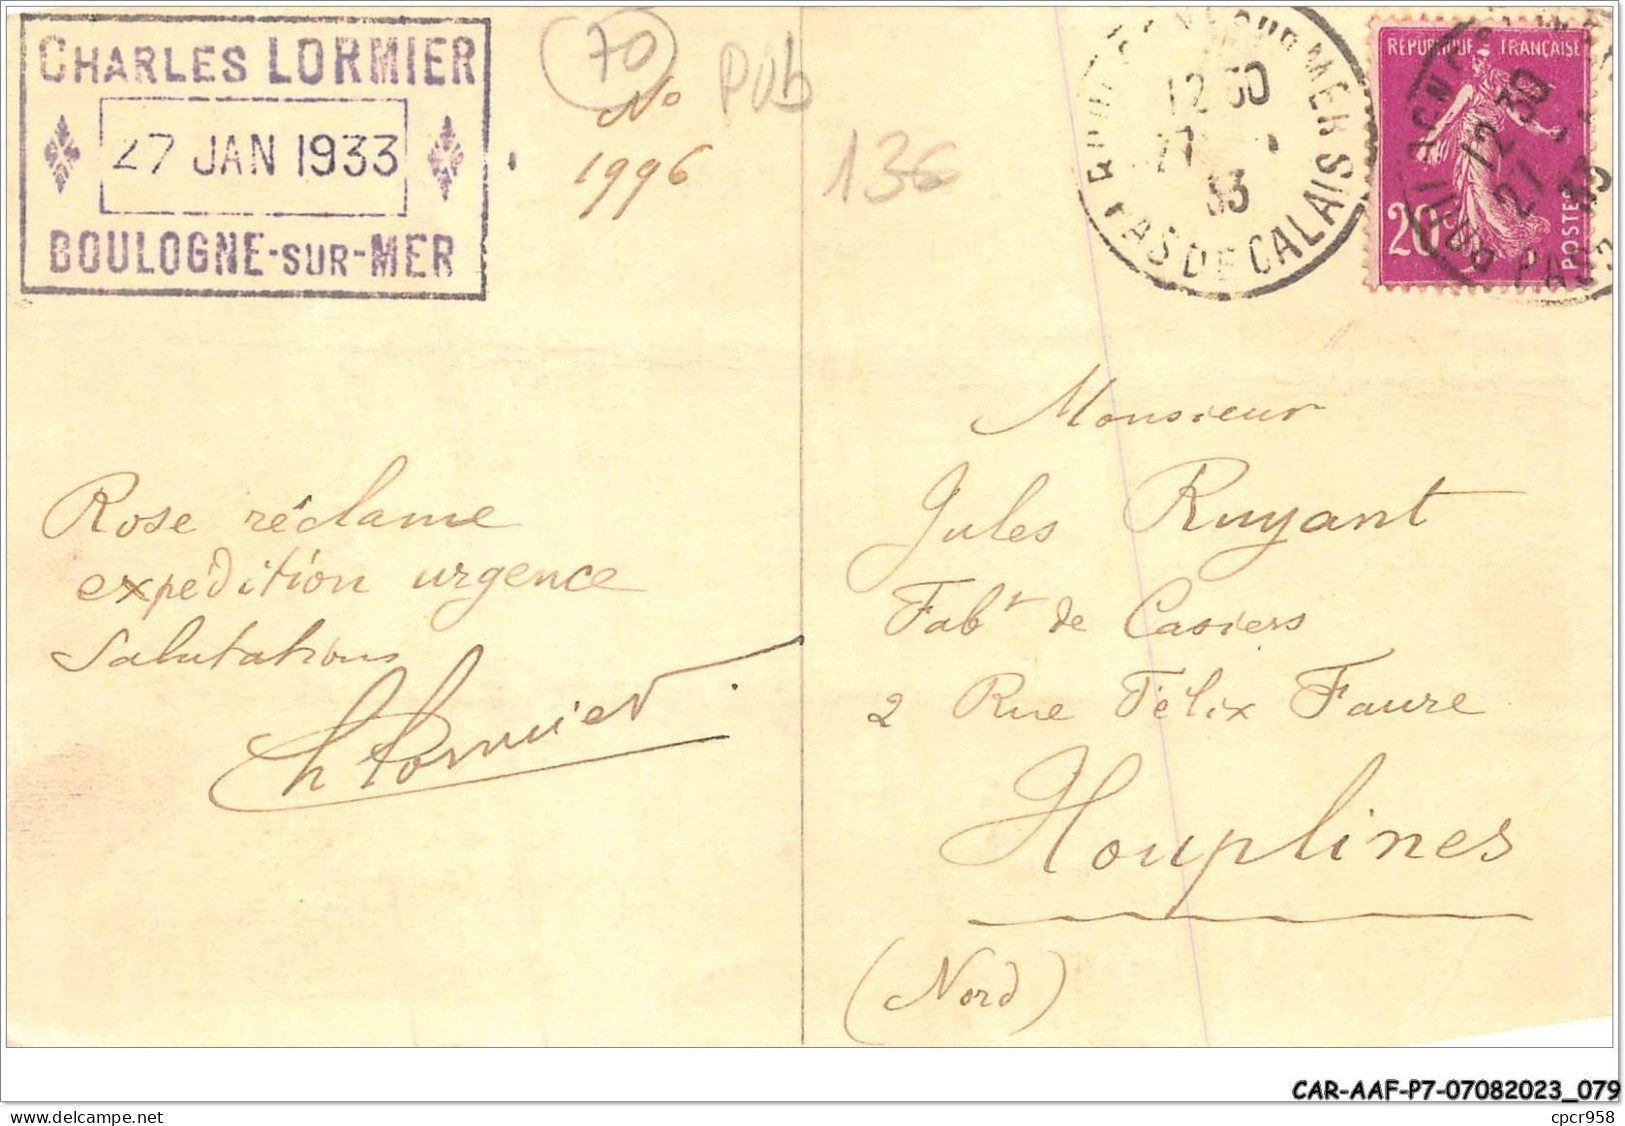 CHARLES LORMIER
27 JAN 1933
BOULOGNE-SUR-MER
70
Pub
No
1996
136
12 30
27
33
PAS DE CALAIS
REPUBLIQUE FRANÇAISE
20c
POSTES
12 30
Rose réclame
expédition urgence
Salutations
Ch Lormier
Monsieur
Jules Ruyant
Fabt de Casiers
2 Rue Félix Faure
Houplines
(Nord)
CAR-AAF-P7-07082023_079
© delcampe.net
cpcr958